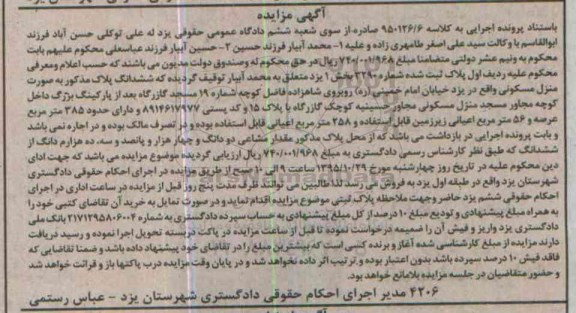 آگهی مزایده
باستناد پرونده اجرایی به کلاسه ۹۵۰۱۲۶/۶ صادره از سوی شعبه ششم دادگاه عمومی حقوقی یزد له علی توکلی حسن آباد فرزند
ابوالقاسم با وکالت سید علی اصغر طامهری زاده و علیه ۱- محمد آبیار فرزند حسین ۲- حسین آبیار فرزند عباسعلی محکوم علیهم بابت
محکوم به ونیم عشر دولتی متضامنا مبلغ ۷۴۰/۰۰۱/۹۶۸ ریال در حق محکوم له وصندوق دولت مدیون می باشند که حسب اعلام ومعرفی
محکوم علیه ردیف اول پلاک ثبت شده شماره ۳۲۹۰ بخش ۱ یزد متعلق به محمد آبیار توقیف گردیده که ششدانگ پلاک مذکور به صورت
منزل مسکونی واقع در یزد خیابان امام خمینی(ره) روبروی شاهزاده فاضل کوچه شماره ۱۹ مسجد گازرگاه بعد از پارکینگ بزرگ داخل
کوچه مجاور مسجد منزل مسکونی مجاور حسینیه کوچک گازرگاه با پلاک ۱۵ و کد پستی ۸۹۱۴۶۱۷۹۷۷ و دارای حدود ۳۸۵ متر مربع
عرصه و ۵۶ متر مربع اعیانی زیرزمین قابل استفاده و ۳۵۸ متر مربع اعیانی قابل استفاده بوده و در تصرف مالک بوده و در اجاره نمی باشد
و بابت پرونده اجرایی در بازداشت می باشد که از محل پلاک مذکور مقدار مشاعی دو دانگ و چهار هزار و پانصد و سه، ده هزارم دانگ از
ششدانگ که طبق نظر کارشناس رسمی دادگستری به مبلغ ۷۴۰/۰۰۱/۹۶۸ ریال ارزیابی گردیده موضوع مزایده می باشد که جهت ادای
دین محکوم علیه در تاریخ روز چهارشنبه مورخ ۱۳۹۵/۱۰/۲۹ ساعت ۹ الی ۱۰ صبح از طریق مزایده در اجرای احکام حقوقی دادگستری
شهرستان یزد واقع در طبقه اول یزد به فروش می رسد لذا طالبین می توانند ظرف مدت پنج روز قبل از مزایده در ساعت اداری در اجرای
احکام حقوقی ششم یزد حاضر وجهت ملاحظه پلاک ثبتی موضوع مزایده اقدام نماید و در صورت تمایل به خرید آن تقاضای کتبی خود را
به همراه مبلغ پیشنهادی و تودیع مبلغ ۱۰ درصد از کل مبلغ پیشنهادی به حساب سپرده دادگستری به شماره ۲۱۷۱۲۹۵۸۰۶۰۰۴ بانک ملی
دادگستری یزد واریز و فیش آن را ضمیمه درخواست نموده تا قبل از ساعت مزایده در پاکت دربسته تحویل اجرا نموده و رسید دریافت
دارند مزایده از مبلغ کارشناسی شده آغاز و برنده کسی است که بیشترین مبلغ را در تقاضای خود پیشنهاد داده باشد و ضمنا تقاضایی که
فاقد فیش ۱۰ درصد سپرده باشد بدون اعتبار بوده و ترتیب اثر داده نخواهد شد و در پایان وقت مزایده درب پاکتها باز و قرائت خواهد شد
و حضور متقاضیان در جلسه مزایده بلامانع خواهد بود.
۴۲۰۶ مدیر اجرای احکام حقوقی دادگستری شهرستان یزد - عباس رستمی